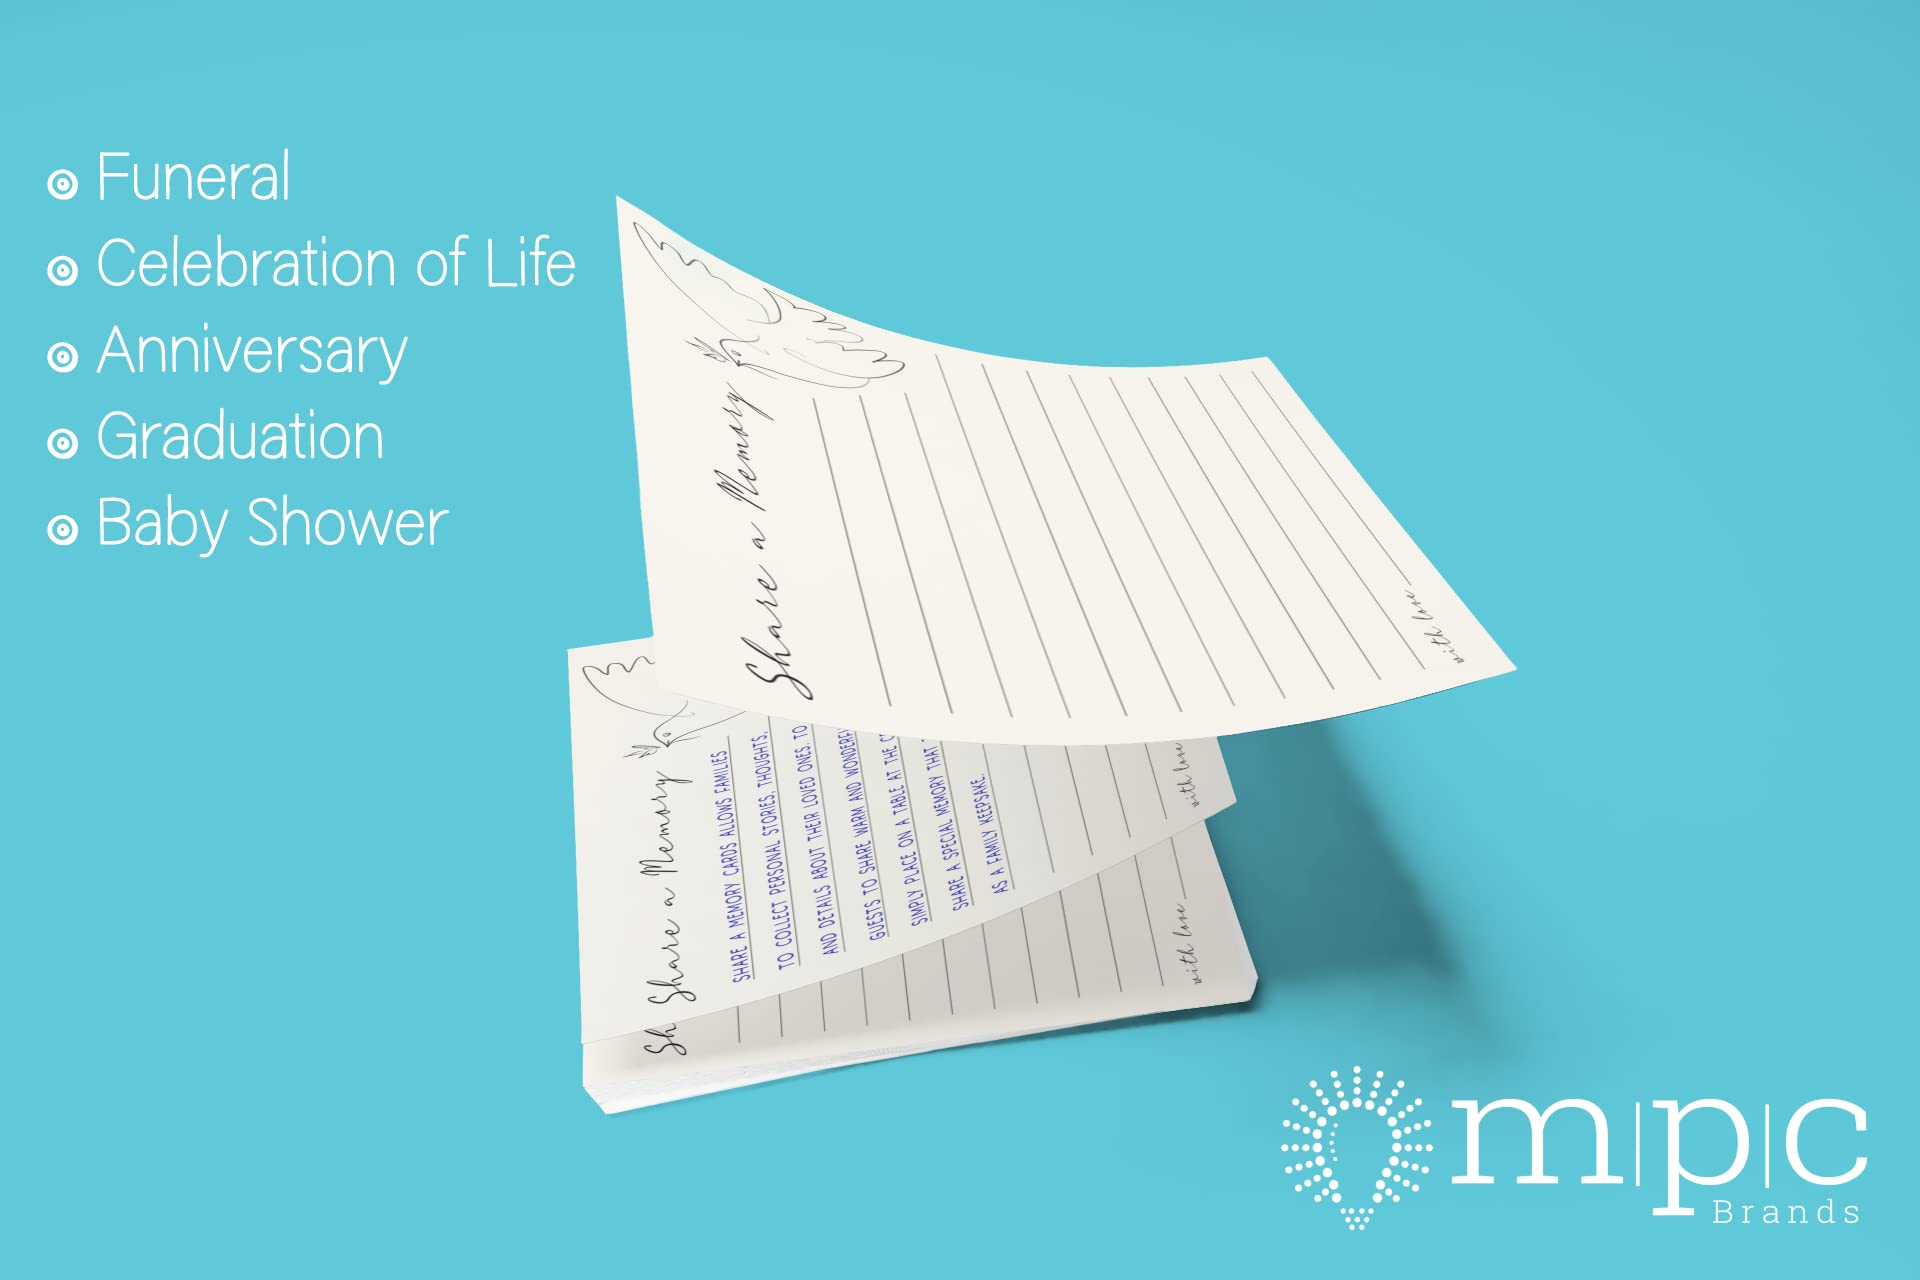 Funeral
Celebration of Life
Anniversary
Graduation
Baby Shower
Share a Memory
with love
Share a Memory
SHARE A MEMORY CARDS ALLOWS FAMILIES
TO COLLECT PERSONAL STORIES, THOUGHTS,
AND DETAILS ABOUT THEIR LOVED ONES. TO
GUESTS TO SHARE WARM AND
SIMPLY PLACE ON A TABLE AT THE
SHARE A SPECIAL MEMORY THAT
AS A FAMILY KEEPSAKE.
with love
Sh
with love
m|p|c
Brands